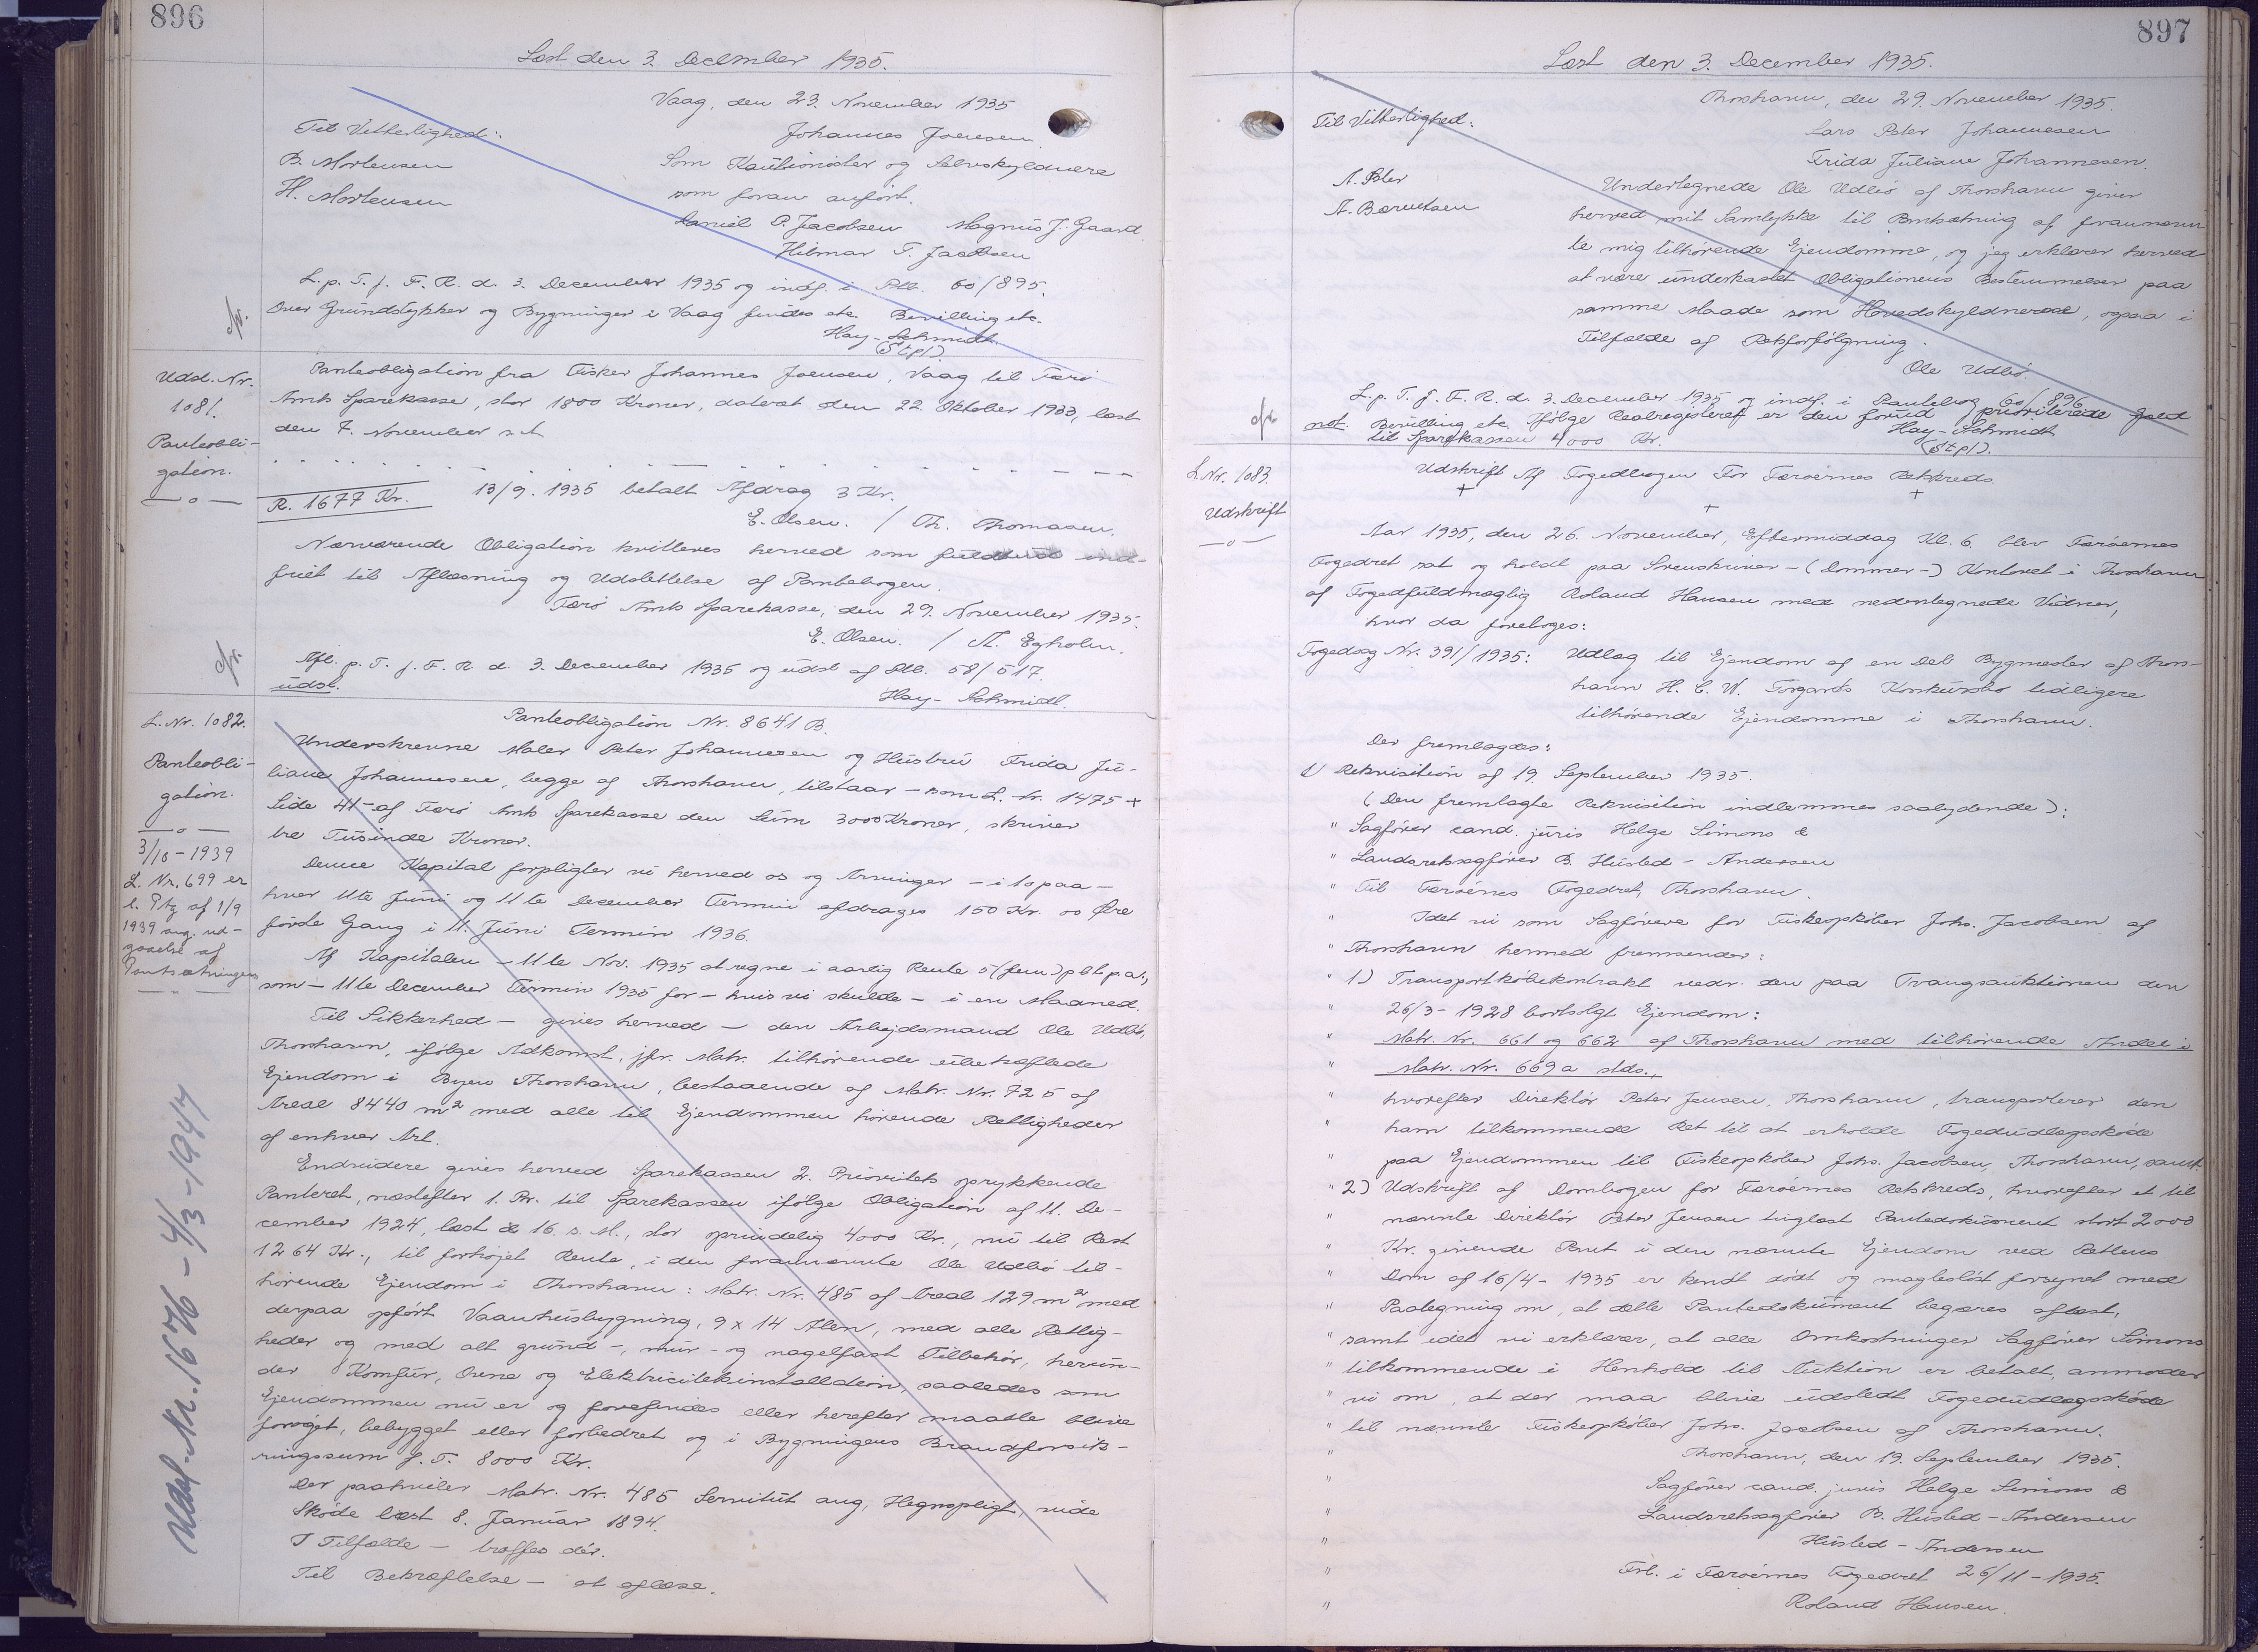 896
Læst den 3. December 1935.
Vaag, den 23. November 1935
Til Vitterlighed:
Johannes Joensen
B. Mortensen
Som Kautionister og Selvskyldnere
H. Mortensen
som foran anført.
Daniel P. Jacobsen Magnus J. Gaard.
Hilmar T. Jacobsen
L. p. T. f. F. R. d. 3. December 1935 og indf. i Ptb. 60/895.
cfr.
Over Grundstykker og Bygninger i Vaag findes etc. Bevilling etc.
Hay-Schmidt.
(Stpl).
Udsl. Nr. 1081.
Panteobli-
gation.
— o —
Panteobligation fra Fisker Johannes Joensen, Vaag til Færø
Amts Sparekasse, stor 1800 Kroner, dateret den 22. Oktober 1933, læst
den 7. November s. A.
R. 1677 Kr. 13/9. 1935 betalt Afdrag 3 Kr.
E. Olsen. / Th. Thomasen.
Nærværende Obligation kvitteres herved som fuldtud ind-
friet til Aflæsning og Udslettelse af Pantebogen.
Færø Amts Sparekasse, den 29. November 1935.
E. Olsen. / A. Egholm.
cfr.
Afl. p. T. f. F. R. d. 3. December 1935 og udsl. af Ptb. 58/517.
udsl.
Hay-Schmidt.
L. Nr. 1082.
Panteobli-
gation.
— o —
3/10-1939
L. Nr. 699 er
l. Ptg af 1/9
1939 ang. ud-
gaaelse af
Pantsætningen
Udsl. Nr. 1676 - 4/3-1947
Panteobligation Nr. 8641 B.
Underskrevne Maler Peter Johannesen og Hustru Frida Ju-
liane Johannesen, begge af Thorshavn, tilstaar - som L. Nr. 1475 +
Side 41 - af Færø Amts Sparekasse den Sum 3000 Kroner, skriver
tre Tusinde Kroner.
Denne Kapital forpligter vi herved os og Arvinger - i 10 paa -
hver 11te Juni og 11te December Termin afdrages 150 Kr. 00 Øre
første Gang i 11. Juni Termin 1936.
Af Kapitalen - 11te Nov. 1935 at regne i aarlig Rente 5 (fem) pCt. p. a.,
som - 11te December Termin 1935 for - hvis vi skulde - i en Maaned.
Til Sikkerhed - gives herved - den Arbejdsmand Ole Udbø,
Thorshavn, ifølge Adkomst, jfr. Matr. tilhørende ubehæftede
Ejendom i Byen Thorshavn, bestaaende af Matr. Nr. 725 af
Areal 8440 m² med alle til Ejendommen hørende Rettigheder
af enhver Art.
Endvidere gives herved Sparekassen 2. Prioritets oprykkende
Panteret, næstefter 1. Pr. til Sparekassen ifølge Obligation af 11. De-
cember 1924, læst d. 16. s. M., stor oprindelig 4000 Kr., nu til Rest
1264 Kr., til forhøjet Rente, i den forannævnte Ole Udbø til-
hørende Ejendom i Thorshavn: Matr. Nr. 485 af Areal 129 m² med
derpaa opført Vaanhusbygning, 9 x 14 Alen, med alle Rettig-
heder og med alt grund-, mur- og nagelfast Tilbehør, herun-
der Komfur, Ovne og Elektricitetsinstallation, saaledes som
Ejendommen nu er og forefindes eller herefter maatte blive
forøget, bebygget eller forbedret og i Bygningens Brandforsik-
ringssum f. T. 8000 Kr.
Der paahviler Matr. Nr. 485 Servitut ang. Hegnspligt, vide
Skøde læst 8. Januar 1894.
I Tilfælde - træffes dér.
Til Bekræftelse - at aflæse.
897
Læst den 3. December 1935.
Thorshavn, den 29. November 1935.
Til Vitterlighed:
Lars Peter Johannesen
Frida Juliane Johannesen.
A. Peter
A. Bærentsen
Undertegnede Ole Udbø af Thorshavn giver
herved mit Samtykke til Pantsætning af forannævn
te mig tilhørende Ejendomme, og jeg erklærer herved
at være underkastet Obligationens Bestemmelser paa
samme Maade som Hovedskyldnerne, ogsaa i
Tilfælde af Retsforfølgning.
Ole Udbø.
cfr.
L. p. T. f. F. R. d. 3. December 1935 og indf. i Pantebog 60/896
not. Bevilling etc. Ifølge Realregisteret er den forud prioriterede Gæld
til Sparekassen 4000 Kr. Hay-Schmidt
(Stpl).
L. Nr. 1083.
Udskrift
— o —
Udskrift Af Fogedbogen For Færøernes Retskreds.
Aar 1935, den 26. November, Eftermiddag Kl. 6. blev Færøernes
Fogedret sat og holdt paa Sorenskriver- (Dommer-) Kontoret i Thorshavn
af Fogedfuldmægtig Roland Hansen med nedentegnede Vidner,
hvor da foretoges:
Fogedsag Nr. 391/1935: Udlæg til Ejendom af en Del Bygmester af Thors-
havn H. C. W. Torgarðs Konkursbo tidligere
tilhørende Ejendomme i Thorshavn.
Der fremlagdes:
1) Rekvisition af 19. September 1935.
(Den fremlagte Rekvisition indlemmes saalydende):
" Sagfører cand. juris Helge Simons &
" Landsretssagfører B. Husted-Andersen
" Til Færøernes Fogedret, Thorshavn.
" Idet vi som Sagførere for Fiskeopkøber Johs. Jacobsen af
" Thorshavn hermed fremsender:
" 1) Transportkøbekontrakt vedr. den paa Tvangsauktionen den
" 26/3-1928 bortsolgt Ejendom:
" Matr. Nr. 661 og 662 af Thorshavn med tilhørende Andel i
" Matr. Nr. 669a stds.,
" hvorefter Direktør Peter Jensen, Thorshavn, transporterer den
" ham tilkommende Ret til at erholde Fogedudlægsskøde
" paa Ejendommen til Fiskeopkøber Johs. Jacobsen, Thorshavn, samt
" 2) Udskrift af Dombogen for Færøernes Retskreds, hvorefter et til
" nævnte Direktør Peter Jensen tinglæst Pantedokument stort 2000
" Kr. givende Pant i den nævnte Ejendom ved Rettens
" Dom af 16/4-1935 er kendt dødt og magtesløst forsynet med
" Paategning om, at dette Pantedokument begæres aflæst,
" samt idet vi erklærer, at alle Omkostninger Sagfører Simons
" tilkommende i Henhold til Auktion er betalt, anmoder
" vi om, at der maa blive udstedt Fogedudlægsskøde
" til nævnte Fiskeopkøber Johs. Jacobsen af Thorshavn.
" Thorshavn, den 19. September 1935.
" Sagfører cand. juris Helge Simons &
" Landsretssagfører B. Husted-Andersen
" Husted-Andersen
" Frl. i Færøernes Fogedret 26/11-1935.
" Roland Hansen.